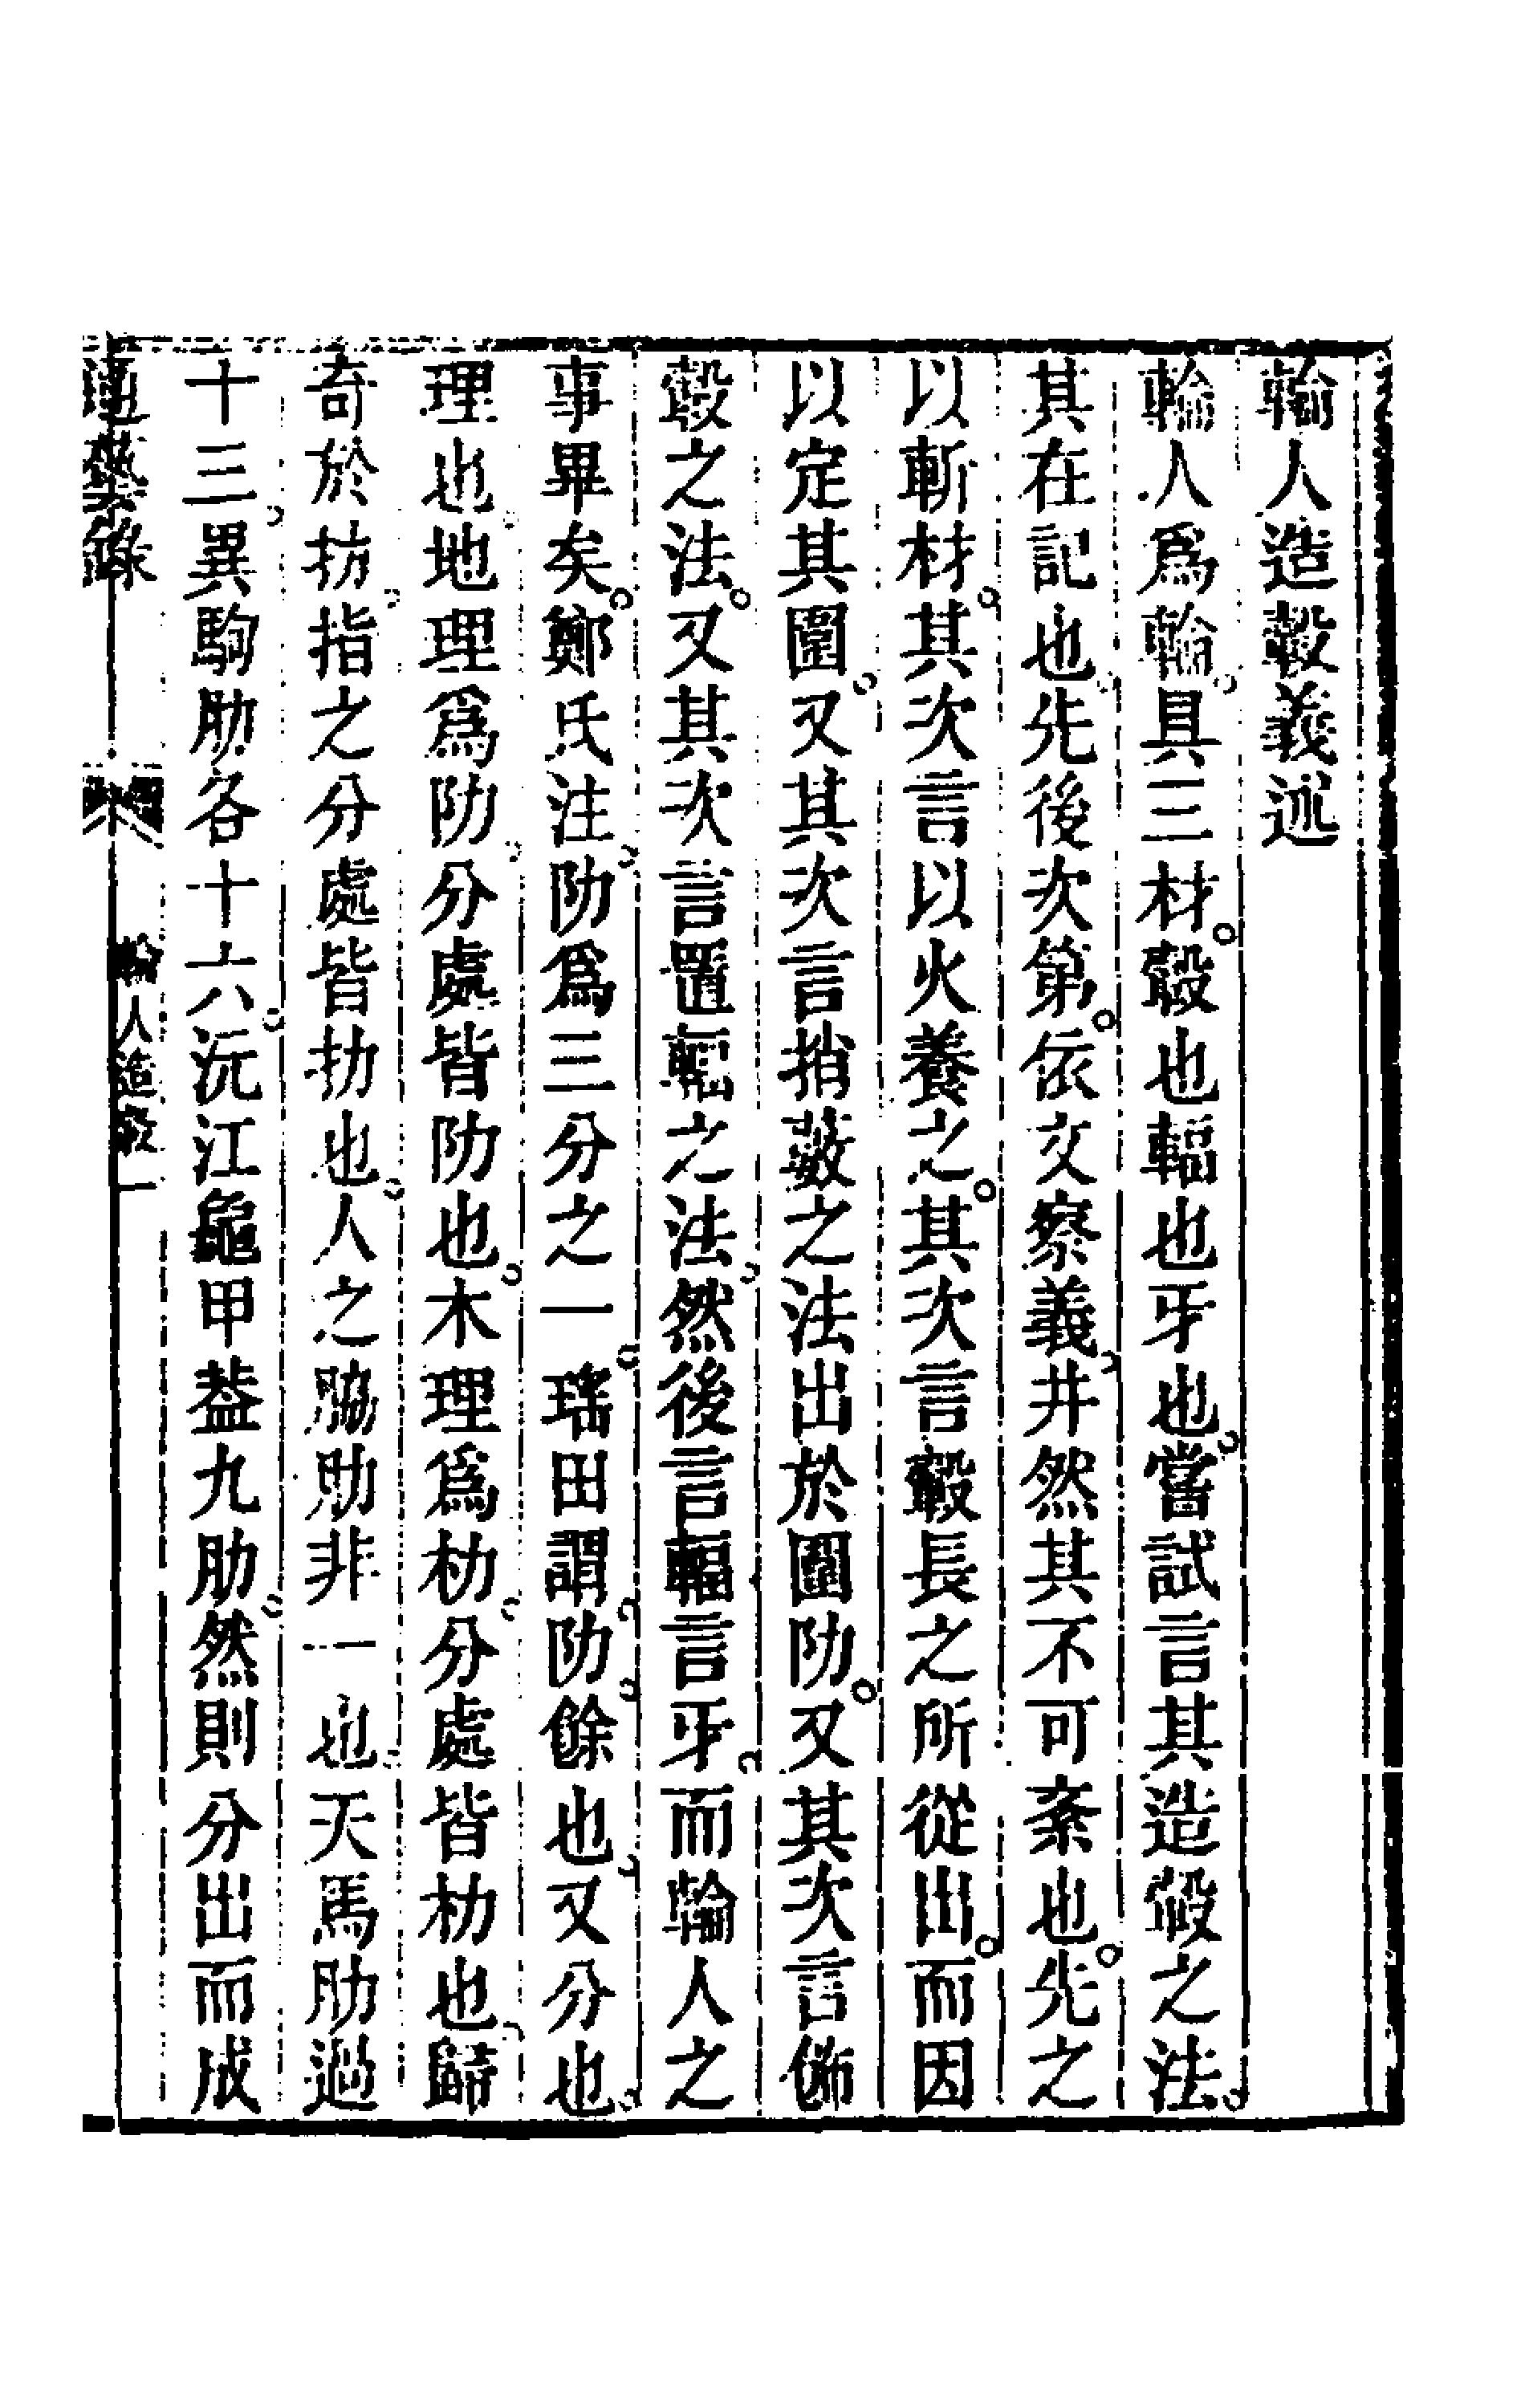 輪人造轂義述
輪人爲輪具三材轂也輻也牙也嘗試言其造轂之法
其在記也先後次第依文察義井然其不可紊也先之
以斬材其次言以火養之其次言轂長之所從出而因
以定其圍又其次言捎藪之法出於圍阞又其次言飾
轂之法又其次言置輻之法然後言輻言牙而輪人之
事畢矣鄭氏注阞爲三分之一瑤田謂阞餘也又分也
理也地理爲阞分處皆阞也木理爲朸分處皆朸也歸
奇於扐指之分處皆扐也人之脇肋非一也天馬肋過
十三異駒肋各十六沅江龜甲葢九肋然則分出而成
通藝錄
輪人造轂
一